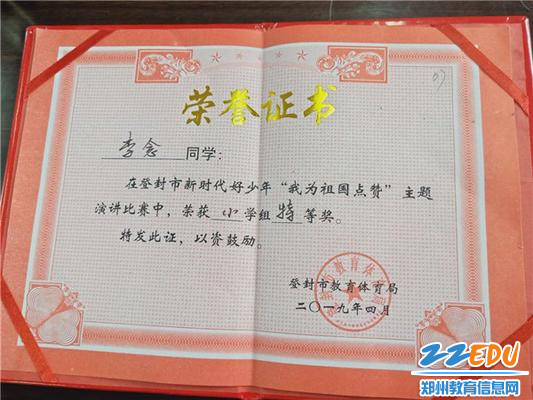 荣誉证书
李念 同学：
在登封市新时代好少年“我为祖国点赞”主题
演讲比赛中，荣获 小 学组 特 等奖。
特发此证，以资鼓励。
登封市教育体育局
二〇一九年四月
登封市教育体育局
ZZEDU
郑州教育信息网